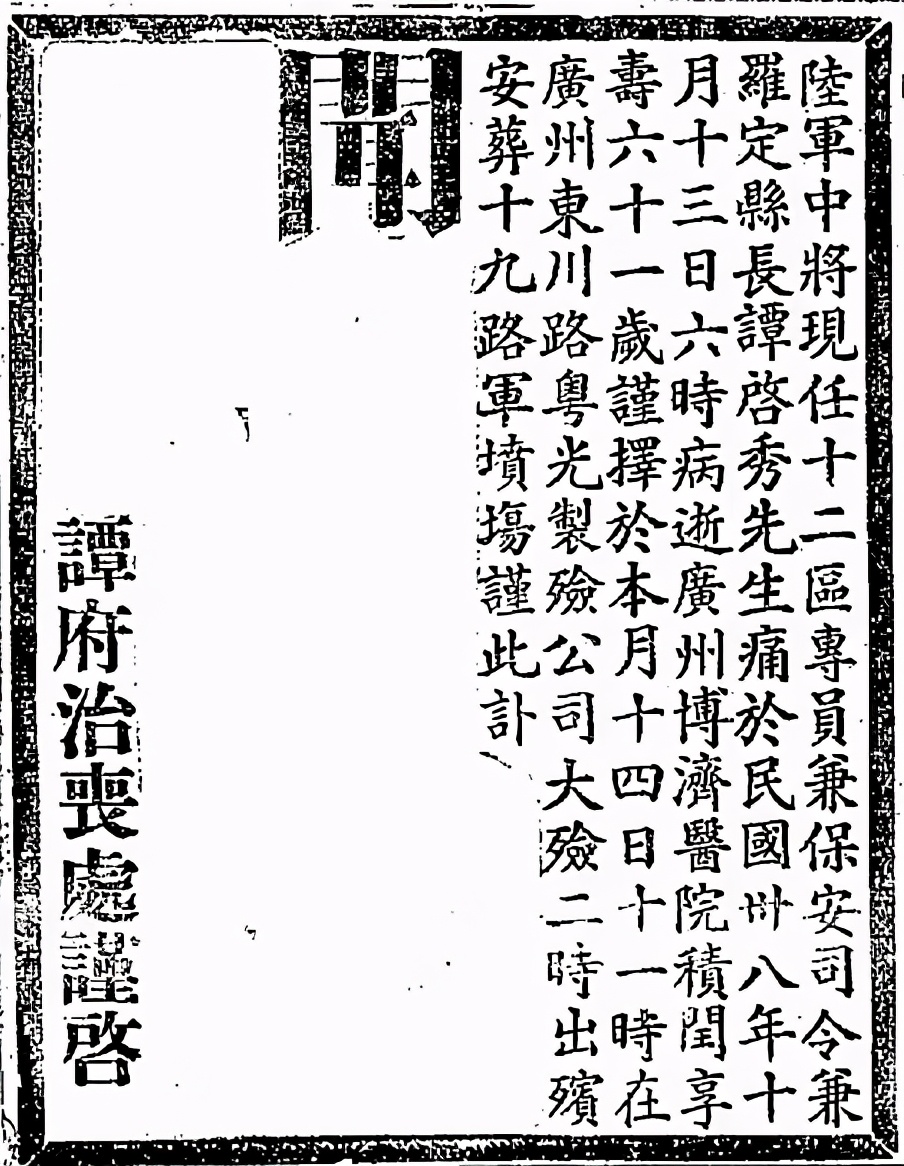 陸軍中將現任十二區專員兼保安司令兼
羅定縣長譚啓秀先生痛於民國卅八年十
月十三日六時病逝廣州博濟醫院積閏享
壽六十一歲謹擇於本月十四日十一時在
廣州東川路粤光製殮公司大殮二時出殯
安葬十九路軍墳塲謹此訃
聞
譚府治喪處謹啓